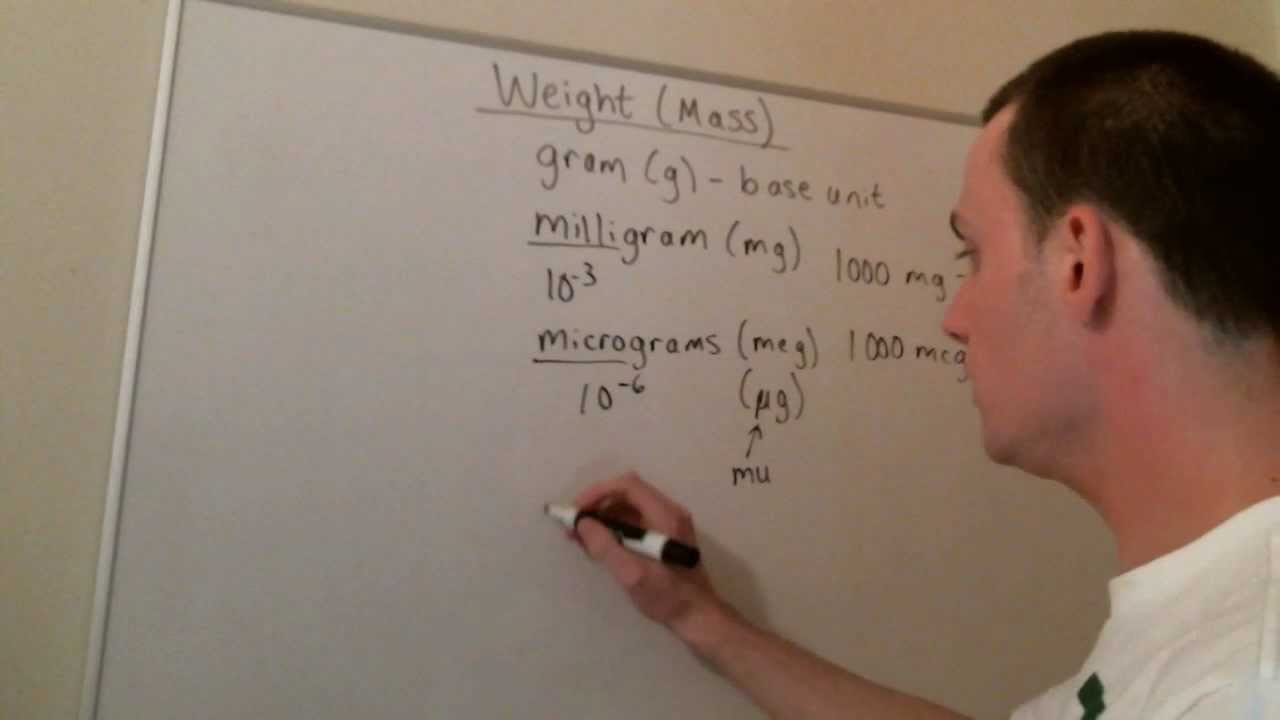 Weight (Mass)
gram (g) - base unit
milligram (mg) 1000 mg -
10⁻³
micrograms (mcg) 1000 mcg
10⁻⁶ (μg)
↑
mu